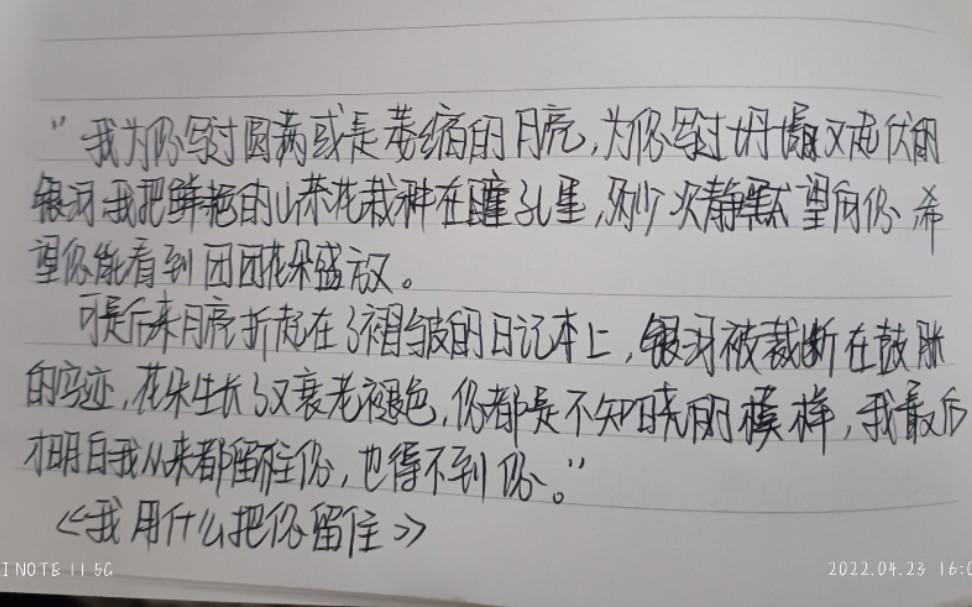 "我为你写过圆满或是萎缩的月亮,为你写过坍塌又起伏的
银河我把鲜艳的山茶花栽种在瞳孔里,多少次静默望向你 希
望你能看到团团花朵盛放。
可是后来月亮折起在了褶皱的日记本上,银河被裁断在鼓胀
的字迹,花朵生长了又衰老褪色,你都是不知晓的模样,我最后
才明白我从来都留不住你,也得不到你。"
<<我用什么把你留住>>
I NOTE 11 5G
2022.04.23 16:0